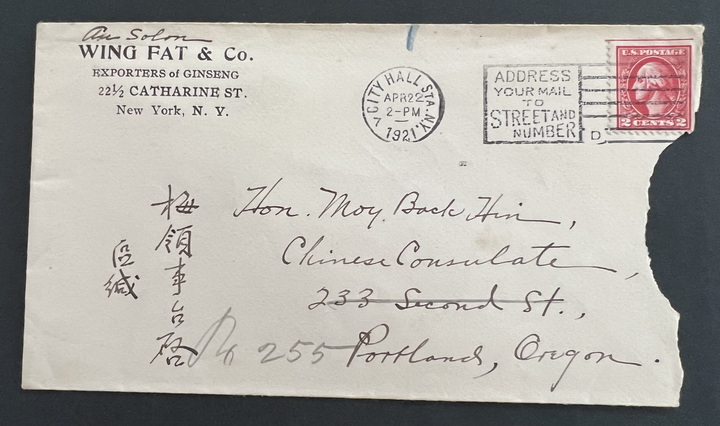 Au Solon
WING FAT & Co.
EXPORTERS of GINSENG
22½ CATHARINE ST.
New York, N. Y.
CITY HALL STA. N.Y.
APR 22
2-PM
1921
ADDRESS
YOUR MAIL
TO
STREET AND
NUMBER
D
U.S. POSTAGE
2 CENTS 2
Hon. Moy Back Hin,
Chinese Consulate,
233 Second St.,
255 Portland, Oregon.
梅領事台啓
區緘